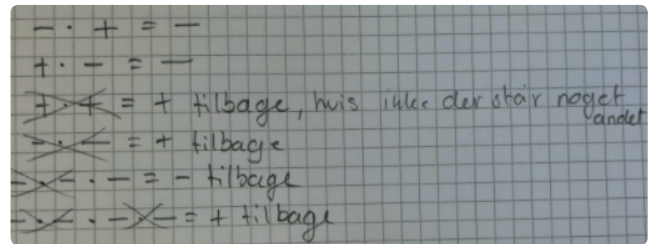 - · + = -
+ · - = -
+ · + = + tilbage, hvis ikke der står noget andet
- · - = + tilbage
- · - · - = - tilbage
- · - · - · - = + tilbage